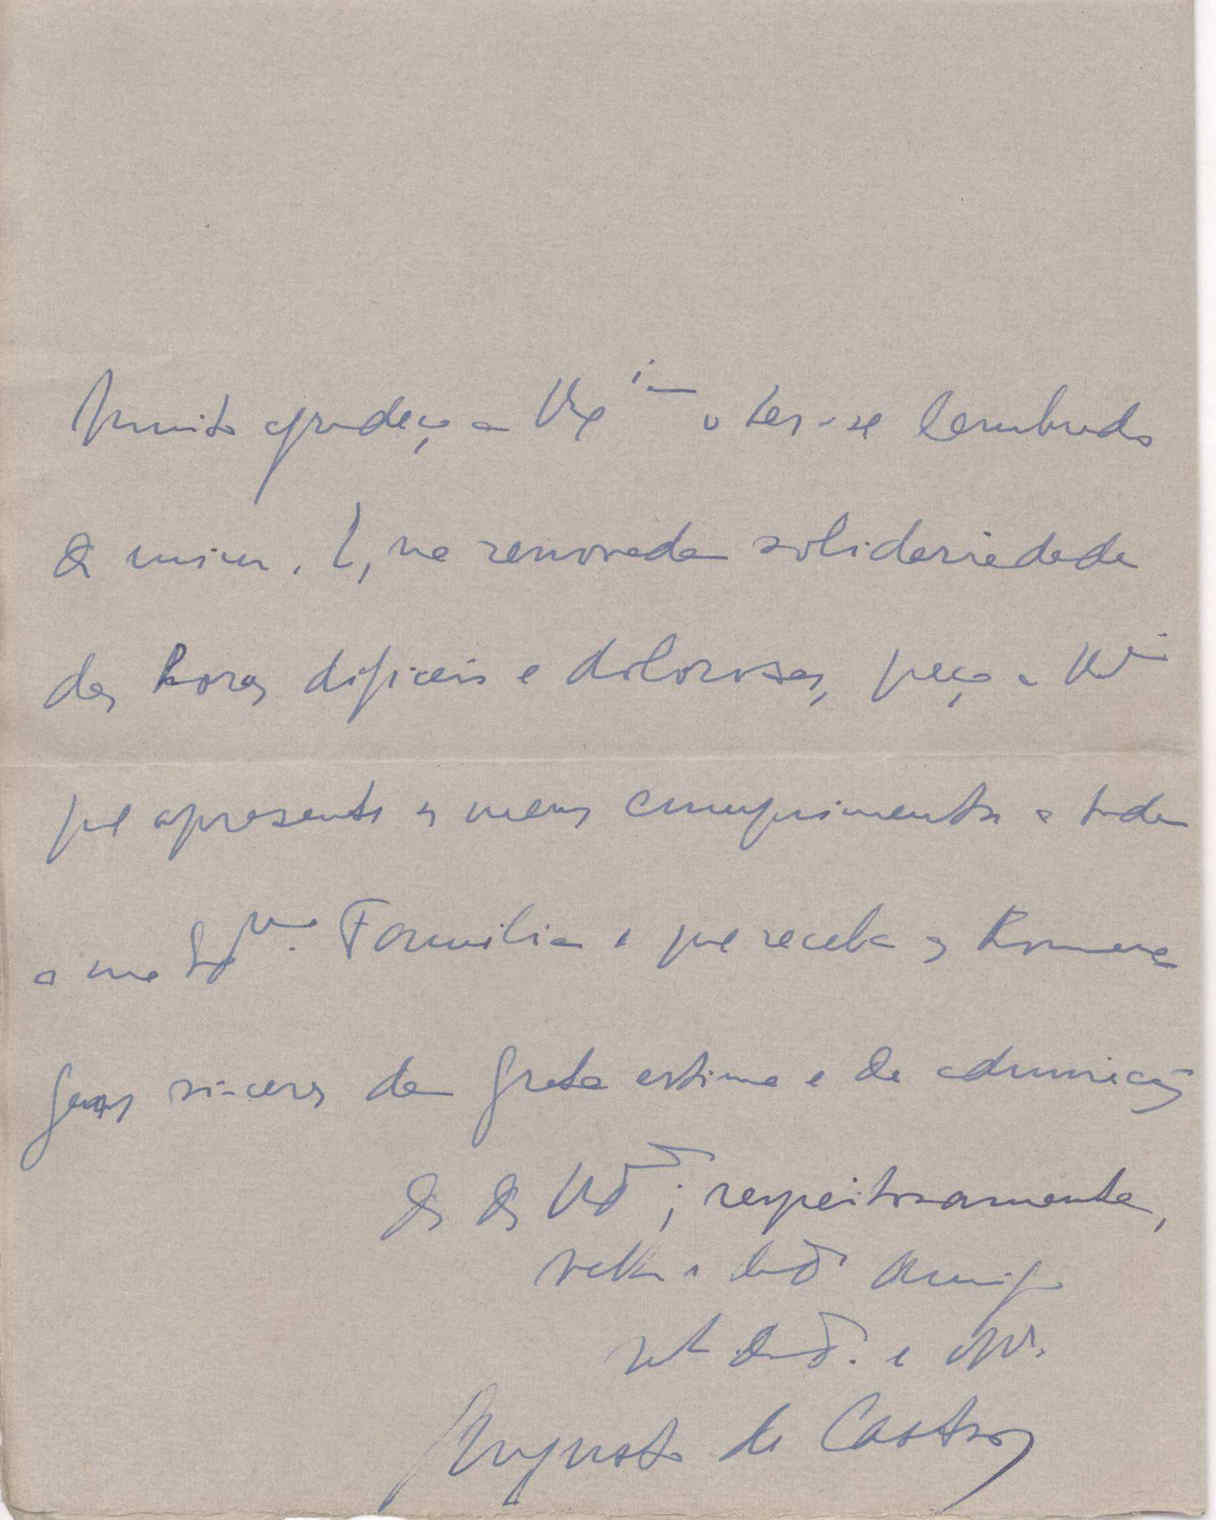 Muito agradeço a V. Ex.ia o ter-se lembrado
de mim. E, na renovada solidariedade
das horas difíceis e dolorosas, peço a V.
que apresente os meus cumprimentos a toda
a sua Ex.ma Família e que receba as homena
gens sinceras da grata estima e da admiração
de V. , respeitosamente,
velho e ded.º amigo
ded.º e obr.
Augusto de Castro